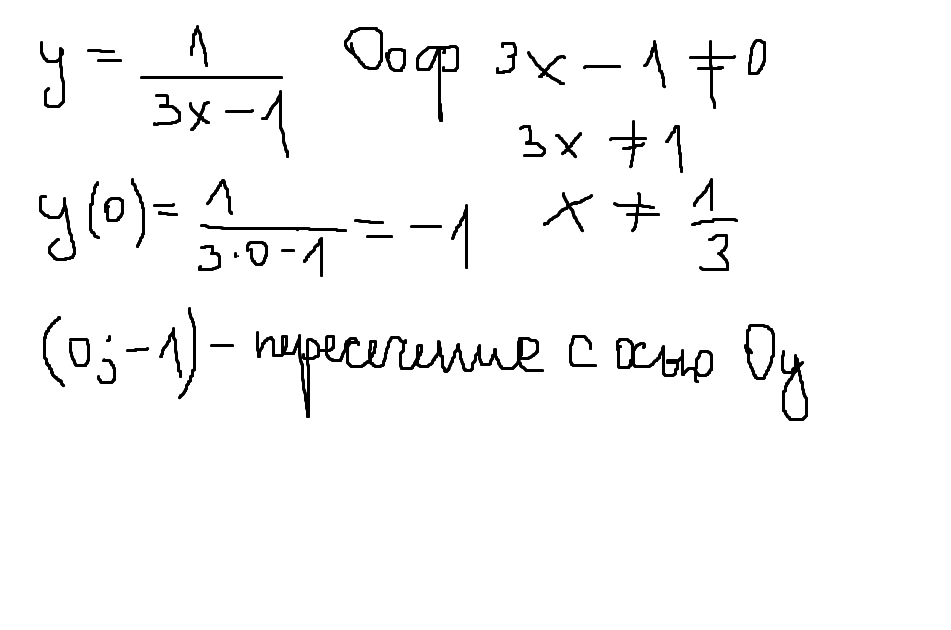 y = 1/(3x - 1) Ооф 3x - 1 ≠ 0
3x ≠ 1
y(0) = 1/(3·0 - 1) = -1 x ≠ 1/3
(0; -1) - пересечение с осью Oy